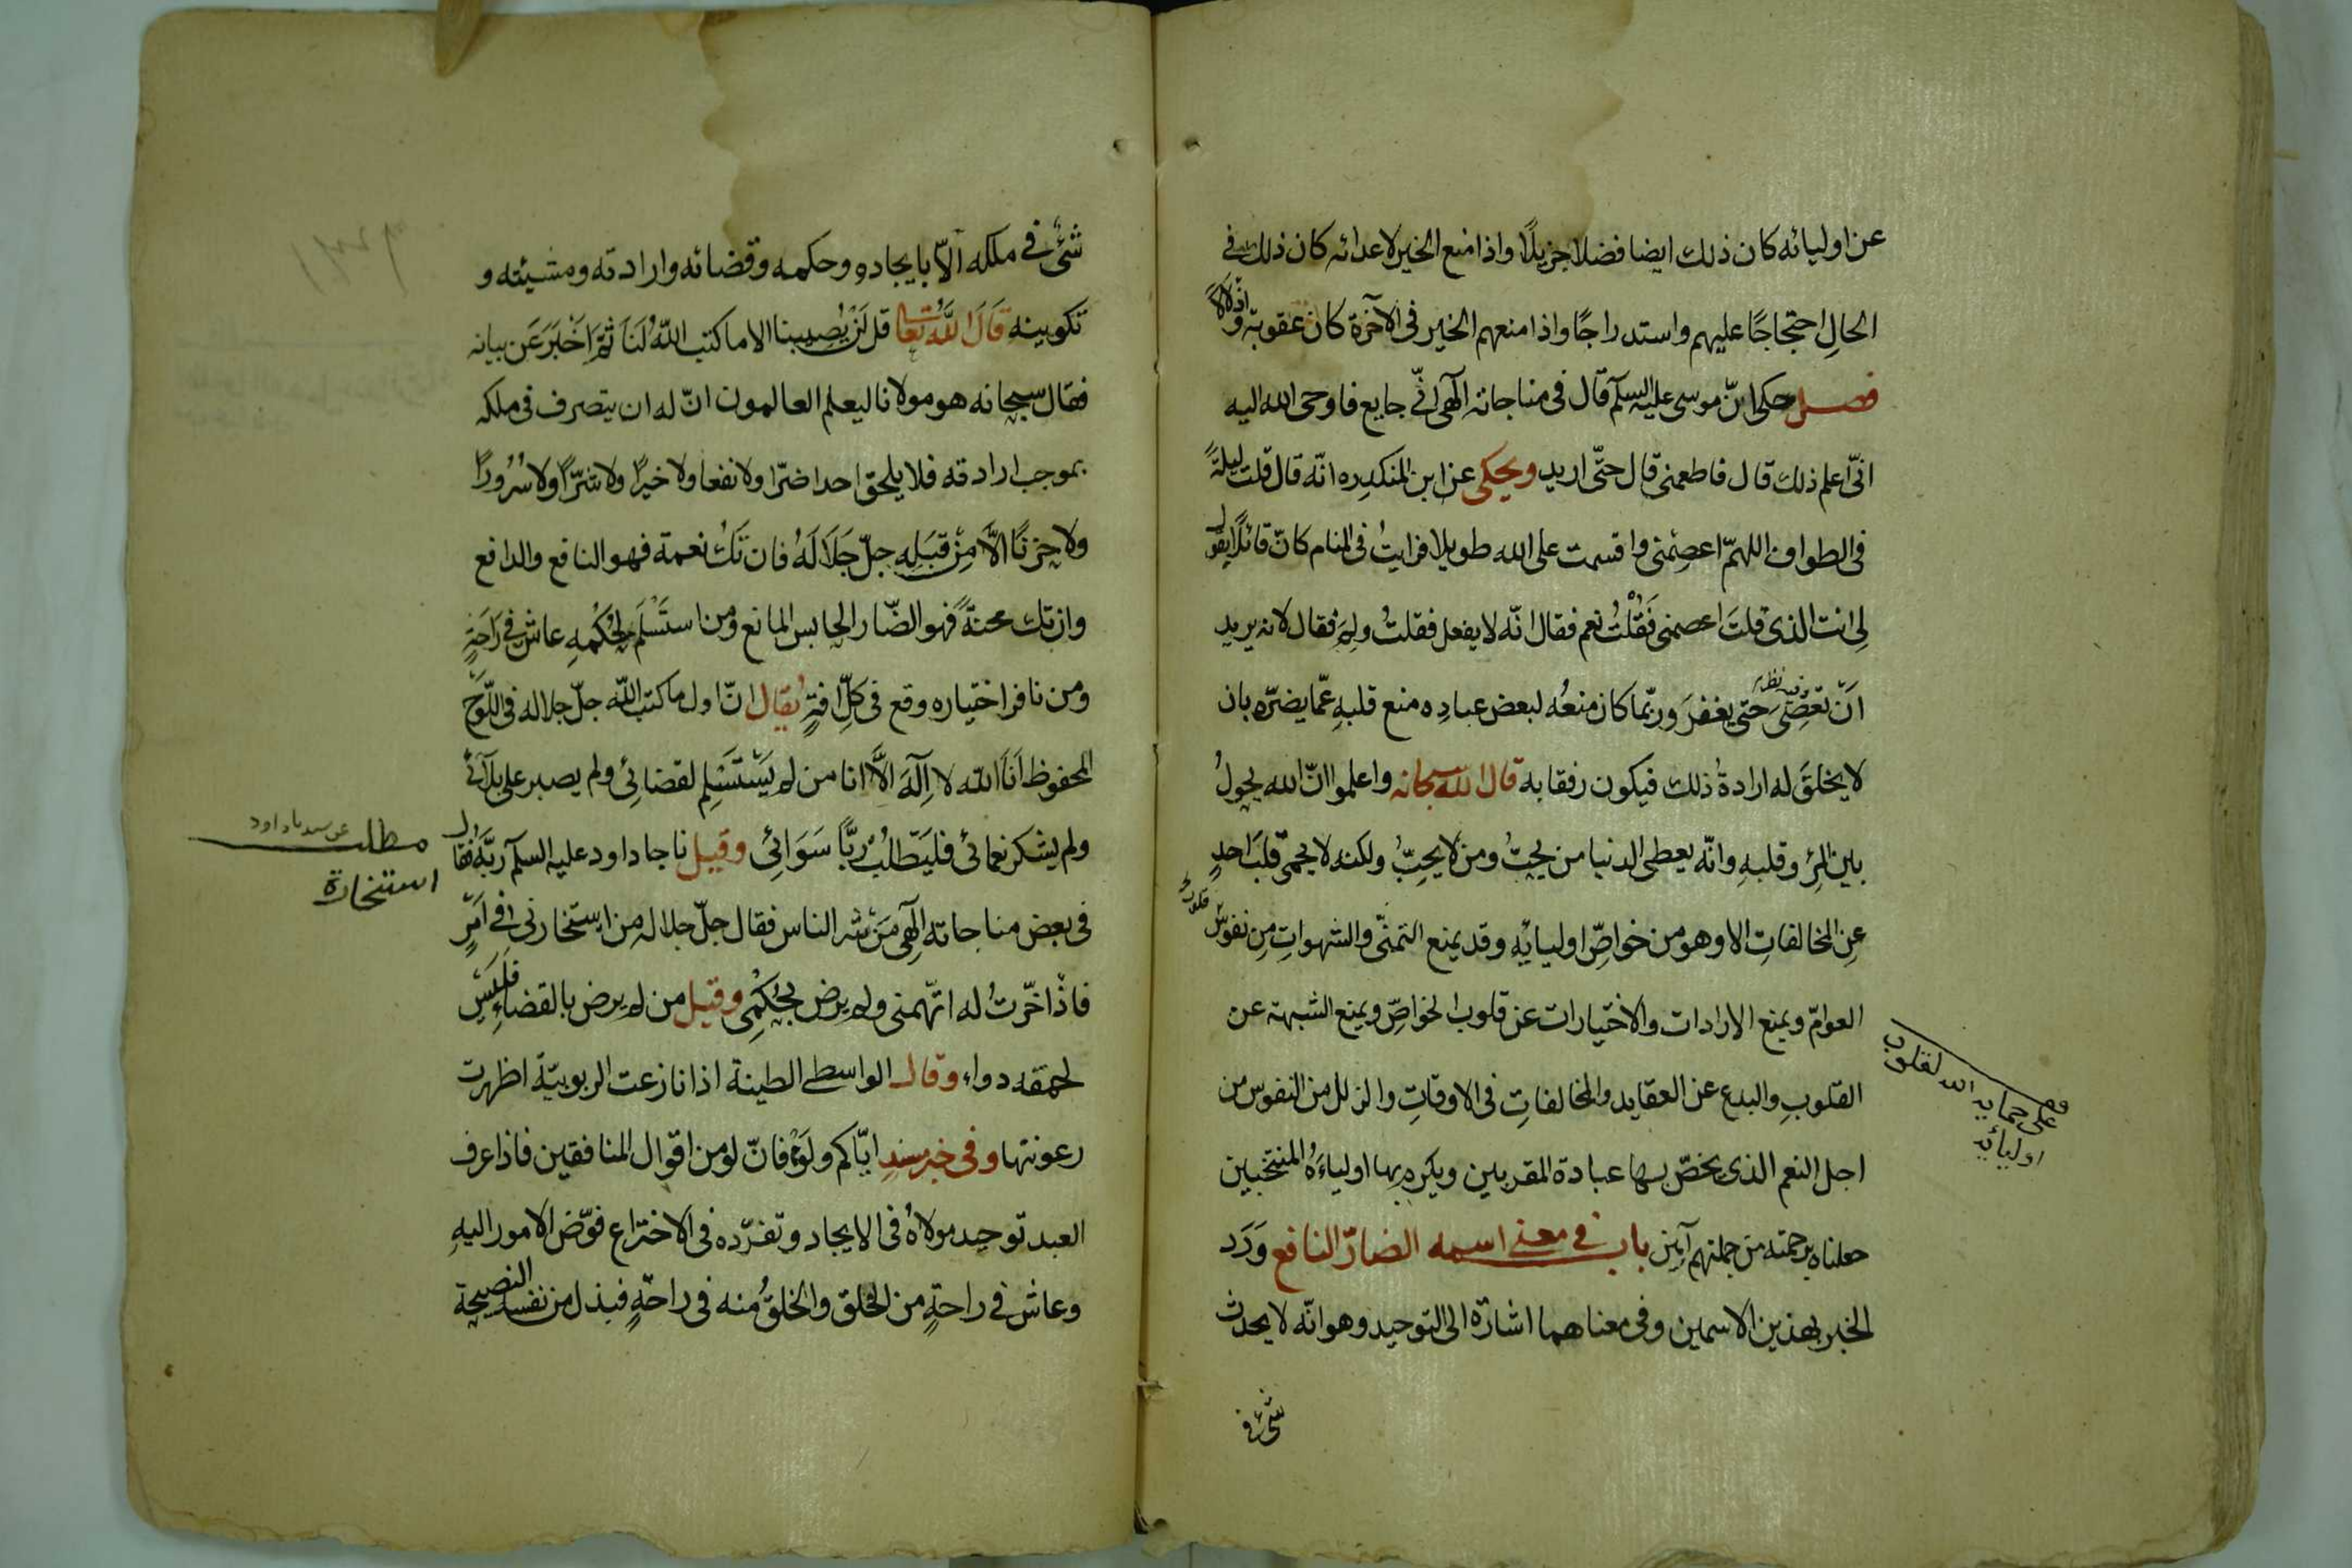 عن اوليائه كان ذلك ايضا فضلا جزيلًا واذا منع الخير لاعدائه كان ذلك في
الحالِ احتجاجًا عليهم واستدراجًا واذا منعهم الخير فى الآخرة كان عقوبة واذلالاً
فصل حكى انّ موسى عليه السلم قال فى مناجاته آلهى انّى جايع فاوحى الله اليه
انّى اعلم ذلك قال فاطعمنى قال حتّى اريد ويحكى عن ابن المنكدر انّه قال قلت ليلةً
فى الطواف اللهمّ اعصمنى واقسمت على الله طويلا فرايتُ فى المنام كانّ قائلًا يقول
لِى انت الذى قلتَ اعصمنى فَقُلْتُ نعم فقال انّه لا يفعل فقلتُ ولِمَ فقال لانه يريد
اَنّ تعصِىَ حتى يغفرَ وربّما كان منعُه لبعض عبادِه منع قلبهِ عمّا يضرّه بان
لا يخلقَ له ارادةُ ذلك فيكون رفقا به قال الله سبحانه واعلموا انّ الله يحولُ
بين المرْءِ وقلبهِ وانّه يعطى الدنيا من يحبُّ ومن لا يحِبُّ ولكنه لا يحمى قلبَ احدٍ
عنِ المخالفاتِ الا وهو من خواصِّ اوليائِه وقد يمنع التمنّى والشهواتِ مِن نفوس
العوامّ ويمنع الارادات والاختيارات عن قلوب الخواصِّ ويمنع الشبهة عن
القلوبِ والبدع عن العقايد والمخالفاتِ فى الاوقاتِ والزلل من النفوس من
اجل النعم الذى يخصّ بها عبادة المقربين ويكرم بها اولياءَهُ المنتخبين
جعلناه برحمته من جملتهم آمين باب في معنى اسمه الضارّ النافع وَرَد
الخبر بهذين الاسمين وفى معناهما اشارة الى التوحيد وهو انّه لا يحدث
شئ فى
على حماية الله لقلوب
اوليائه
شئ في ملكه الّا بايجاده وحكمه وقضائه وارادته ومشيئته و
تكوينه قَالَ اللَّهُ تعالى قل لَنْ يُصيبنا الا ما كتب اللّهُ لَنَا ثُمَّ اَخْبَرَ عَن بيانه
فقال سبحانه هو مولانا ليعلم العالمون انّ له ان يتصرف فى ملكه
بموجب ارادته فلا يلحق احدا ضرّا ولا نفعا ولا خيرًا ولا شرّاً ولا سُرُورًا
ولا حزنًا الَّا مِنْ قبَلِهِ جلّ جَلَالَهُ فان تَكُ نعمة فهو النافع والدافع
وان تك محنةً فهو الضّار الحابس المانع ومن استَسْلَمَ لِحُكمهِ عاش فى رَاحَةٍ
ومن نافر اختياره وقع فى كلِّ افةٍ يُقال انّ اول ما كتب الله جلّ جلاله فى اللّوح
المحفوظ اَنَا الله لا اِلَهَ الَّا انا من لم يَسْتَسْلِم لقضائِى ولم يصبر على بلَائى
ولم يشكر نعمائى فليَطلُبْ رَبًّا سَوَائِى وقيل ناجا داود عليه السلم ربَّه فقال
فى بعض مناجاته اِلَهِى مَنْ شر الناس فقال جلّ جلاله من استخارنى فى اَمْرٍ
فاذا خّرتُ له اتّهمنى ولم يرض بحُكمِى وقيل من لم يرض بالقضاءِ فليس
لحمقه دواء وقال الواسطى الطينة اذا نازعت الربوبيّة اظهرت
رعونتها وفى خبر مسندٍ ايّاكم ولَوْ فانّ لو من اقوال المنافقين فاذا عرف
العبد توحيد مولاهُ فى الايجاد وتفرّده فى الاختراع فوّض الامور اليهِ
وعاش فى راحةٍ من الخلق والخلقُ منه فى راحةٍ فبذل من نفسه النصيحة
مطلب عن سيدنا داود
استخارة